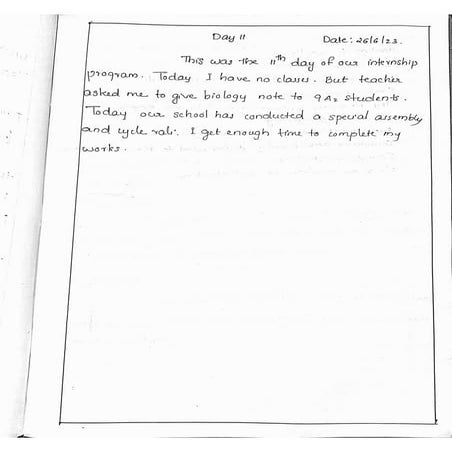 Day 11 Date: 26/6/23.
This was the 11th day of our internship
program. Today I have no classes. But teacher
asked me to give biology note to 9 A2 students.
Today our school has conducted a special assembly
and cycle rali. I get enough time to complete my
works.